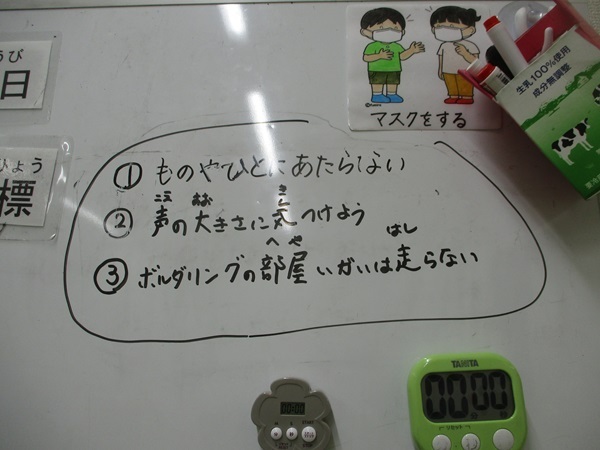 うび
日
ひょう
標
マスクをする
生乳100%使用
成分無調整
① ものやひとにあたらない
こえ おお き
② 声の大きさに気つけよう
へや はし
③ ボルダリングの部屋いがいは走らない
TANITA
00:00